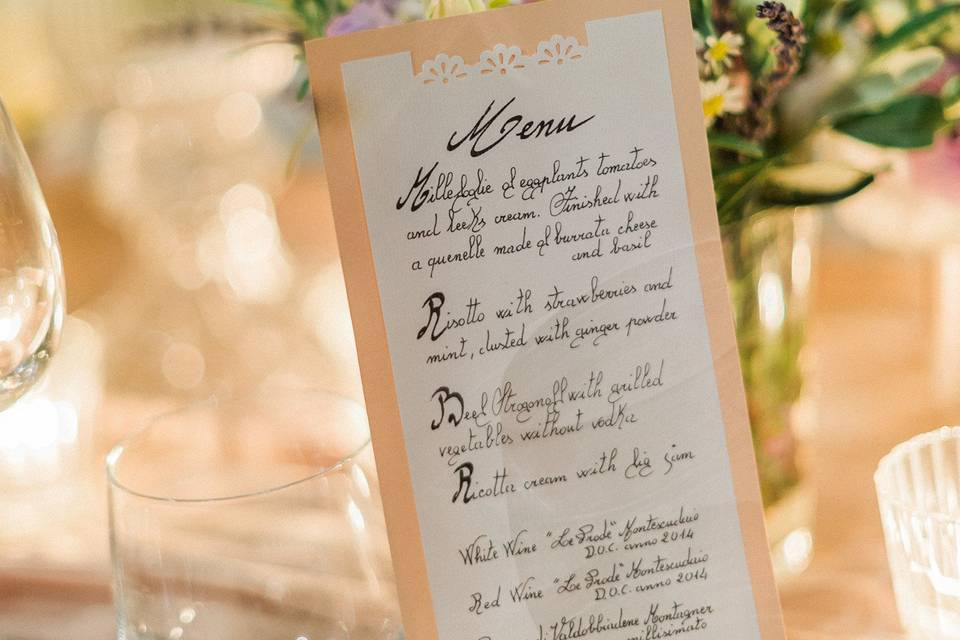 Menu
Millefoglie of eggplants tomatoes
and leeks cream. Finished with
a quenelle made of burrata cheese
and basil
Risotto with strawberries and
mint, dusted with ginger powder
Beef Stroganoff with grilled
vegetables without vodka
Ricotta cream with fig jam
White Wine "Le Prode" Montescudaio
D.O.C. anno 2014
Red Wine "Le Prode" Montescudaio
D.O.C. anno 2014
di Valdobbiadene Montagner
millesimato